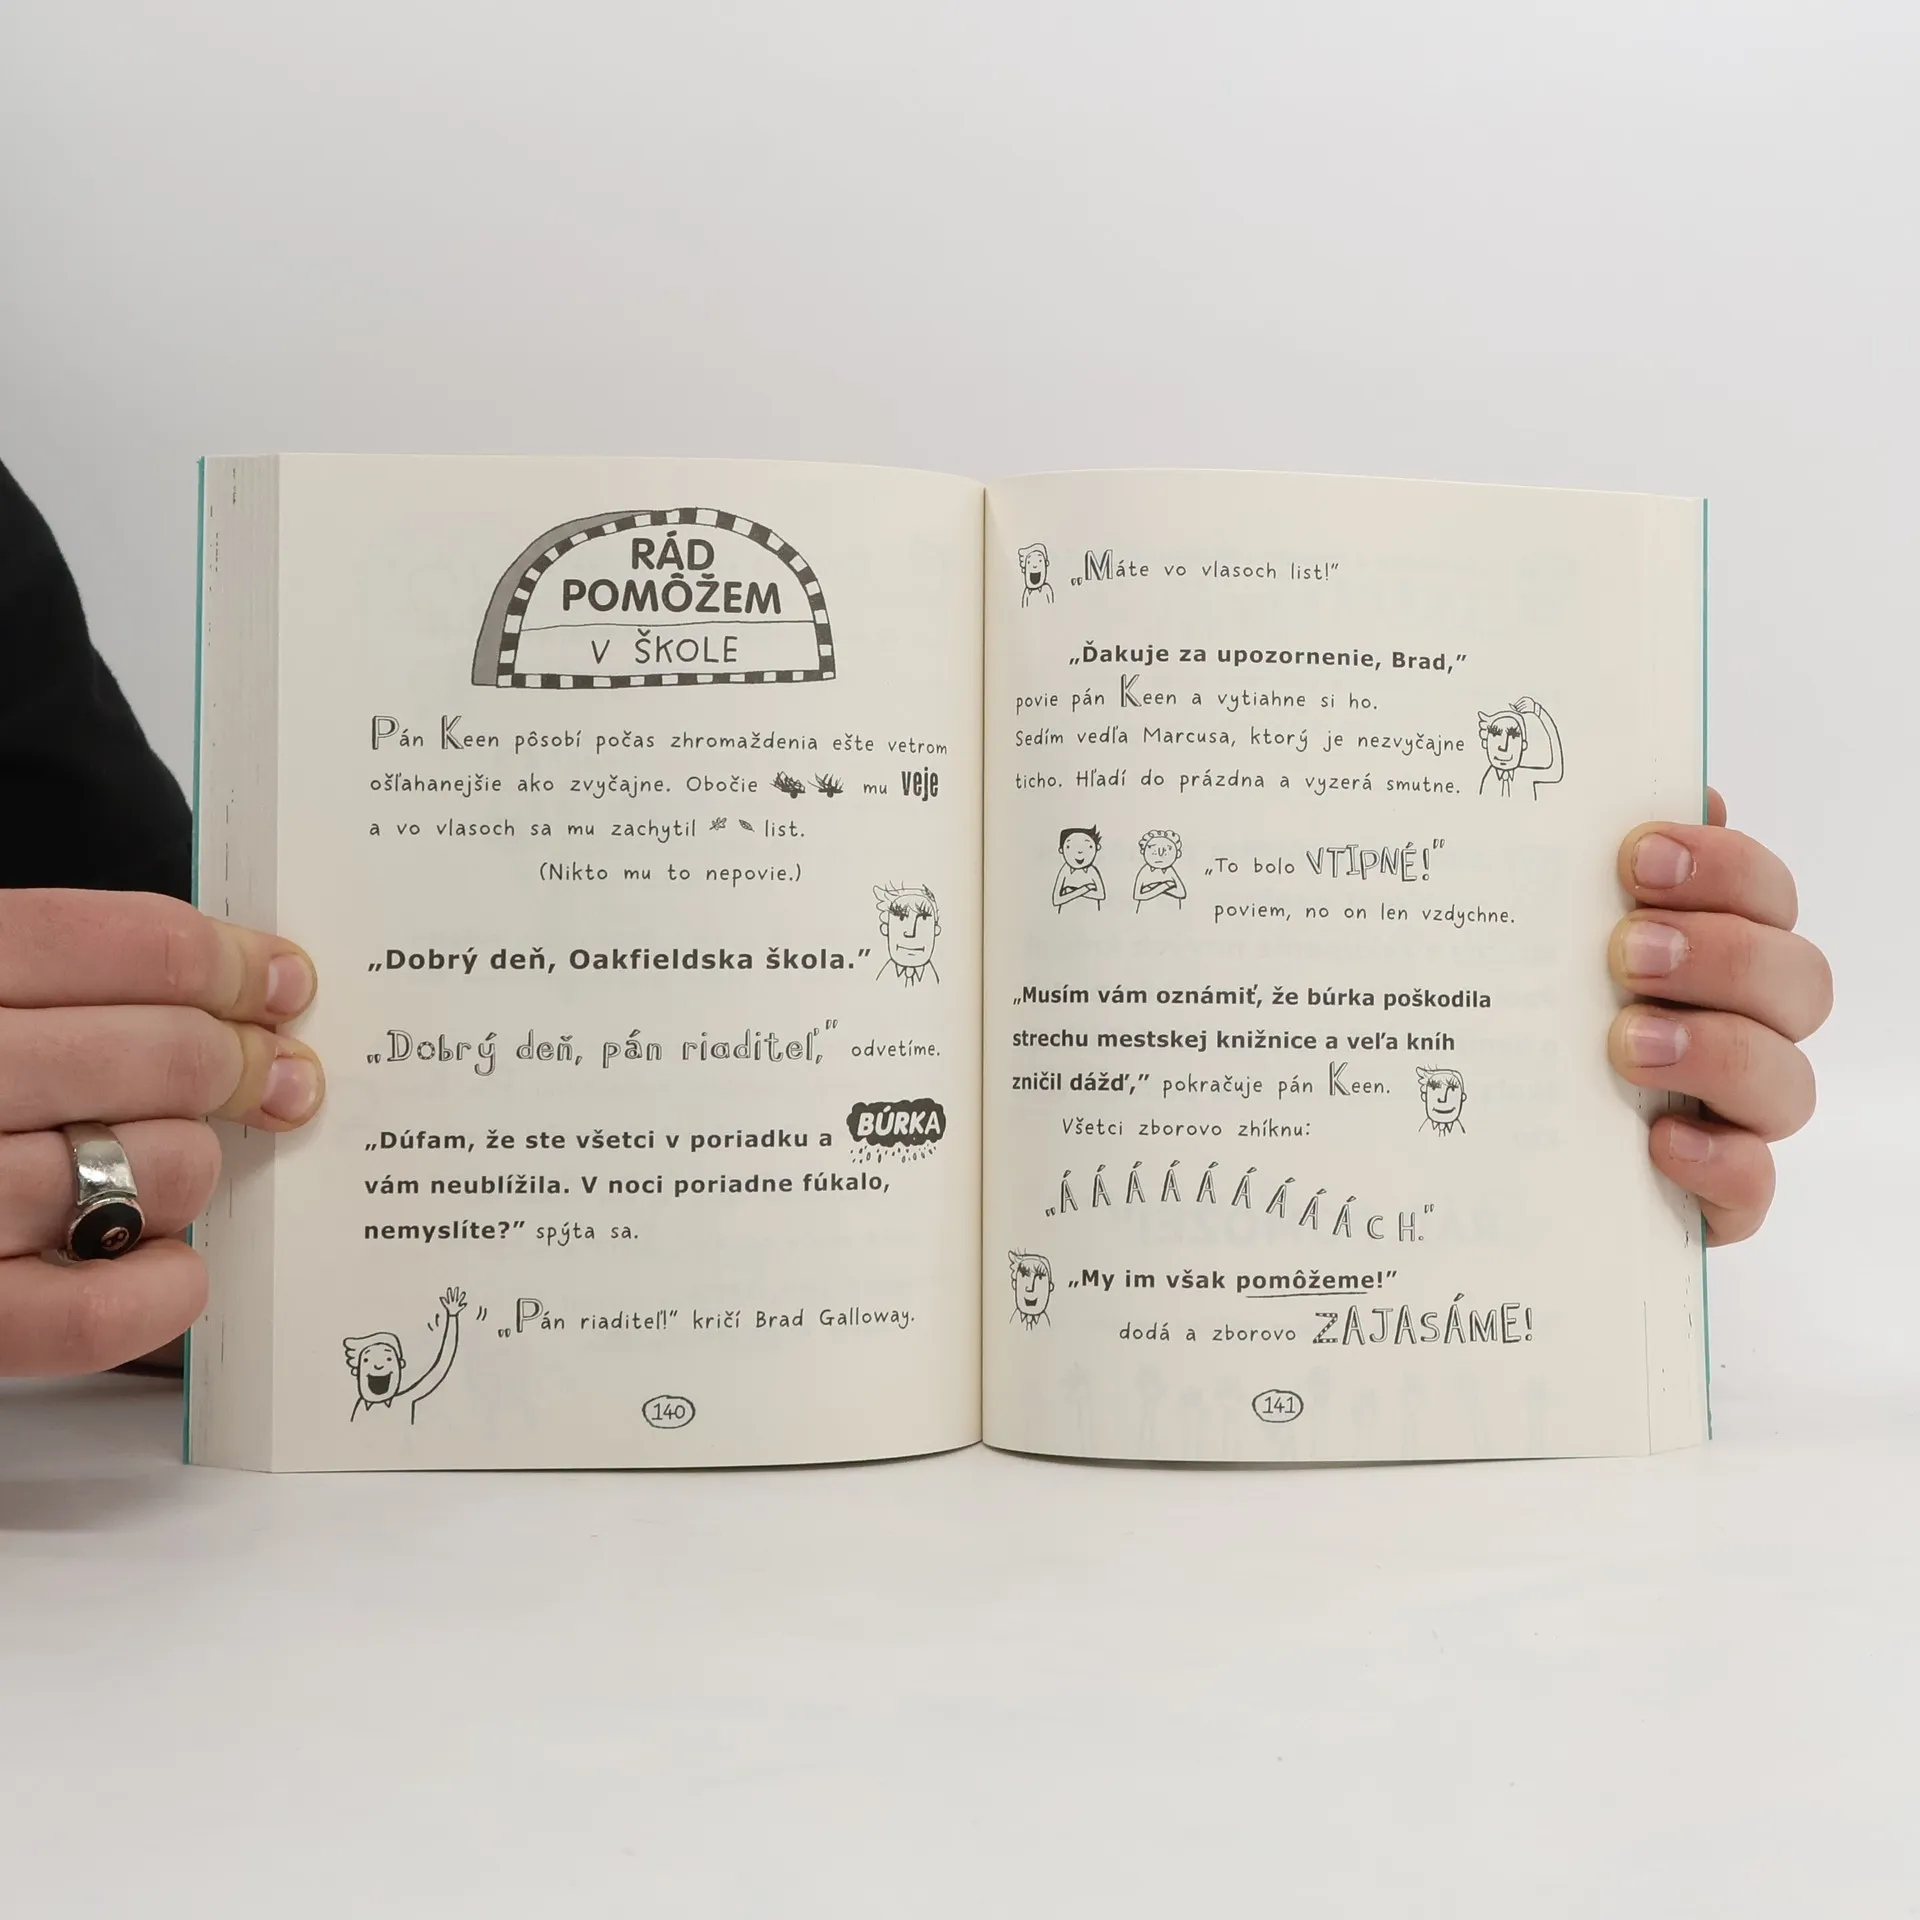 RÁD
POMÔŽEM
V ŠKOLE
Pán Keen pôsobí počas zhromaždenia ešte vetrom
ošľahanejšie ako zvyčajne. Obočie mu veje
a vo vlasoch sa mu zachytil list.
(Nikto mu to nepovie.)
„Dobrý deň, Oakfieldska škola.”
„Dobrý deň, pán riaditeľ,” odvetíme.
„Dúfam, že ste všetci v poriadku a BÚRKA
vám neublížila. V noci poriadne fúkalo,
nemyslíte?” spýta sa.
„Pán riaditeľ!” kričí Brad Galloway.
140
„Máte vo vlasoch list!”
„Ďakuje za upozornenie, Brad,”
povie pán Keen a vytiahne si ho.
Sedím vedľa Marcusa, ktorý je nezvyčajne
ticho. Hľadí do prázdna a vyzerá smutne.
„To bolo VTIPNÉ!”
poviem, no on len vzdychne.
„Musím vám oznámiť, že búrka poškodila
strechu mestskej knižnice a veľa kníh
zničil dážď,” pokračuje pán Keen.
Všetci zborovo zhíknu:
„ÁÁÁÁÁÁÁÁÁCH.”
„My im však pomôžeme!”
dodá a zborovo ZAJASÁME!
141